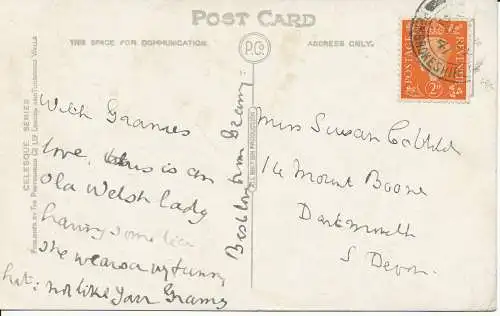 POST CARD
THIS SPACE FOR COMMUNICATION.
P.Co.
ADDRESS ONLY.
POSTAGE
REVENUE
2D
PEMBROKESHIRE
CELESQUE SERIES
PUBLISHED BY THE PHOTOCHROM CO LTD LONDON AND TUNBRIDGE WELLS
ALL BRITISH PRODUCTION
With Grannies
love. this is an
old Welsh lady
having some tea
she wears a very funny
hat: not like your Granny
Best love from Granny
Miss Susan
14 Mount Boone
Dartmouth
S Devon.